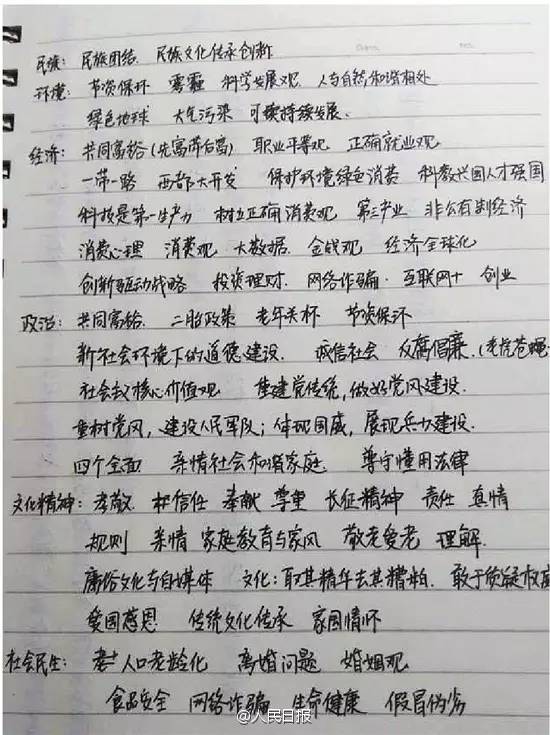 民族: 民族团结 民族文化传承创新
环境: 节资保环 雾霾 科学发展观 人与自然和谐相处
绿色地球 大气污染 可续持续发展.
经济: 共同富裕(先富带后富) 职业平等观 正确就业观
一带一路 西部大开发 保护环境绿色消费 科教兴国人才强国
科技是第一生产力 树立正确消费观 第三产业 非公有制经济
消费心理 消费观 大数据 金钱观 经济全球化
创新驱动战略 投资理财. 网络诈骗. 互联网+ 创业
政治: 共同富裕. 二胎政策 老年关怀 节资保环
新社会环境下的道德建设. 诚信社会 反腐倡廉.(老虎苍蝇
社会主义核心价值观 重建党传统,做好党风建设.
重树党风,建设人民军队;体现国威,展现兵力建设.
四个全面 亲情社会和谐家庭 尊守懂用法律
文化精神: 孝敬. 信任 奉献 尊重 长征精神 责任 真情
规则 亲情 家庭教育与家风 敬老爱老 理解.
庸俗文化与自媒体 文化:取其精华去其糟粕. 敢于质疑权威
爱国感恩 传统文化传承 家国情怀
社会民生: 人口老龄化 离婚问题 婚姻观
食品安全 网络诈骗 生命健康 假冒伪劣
@人民日报